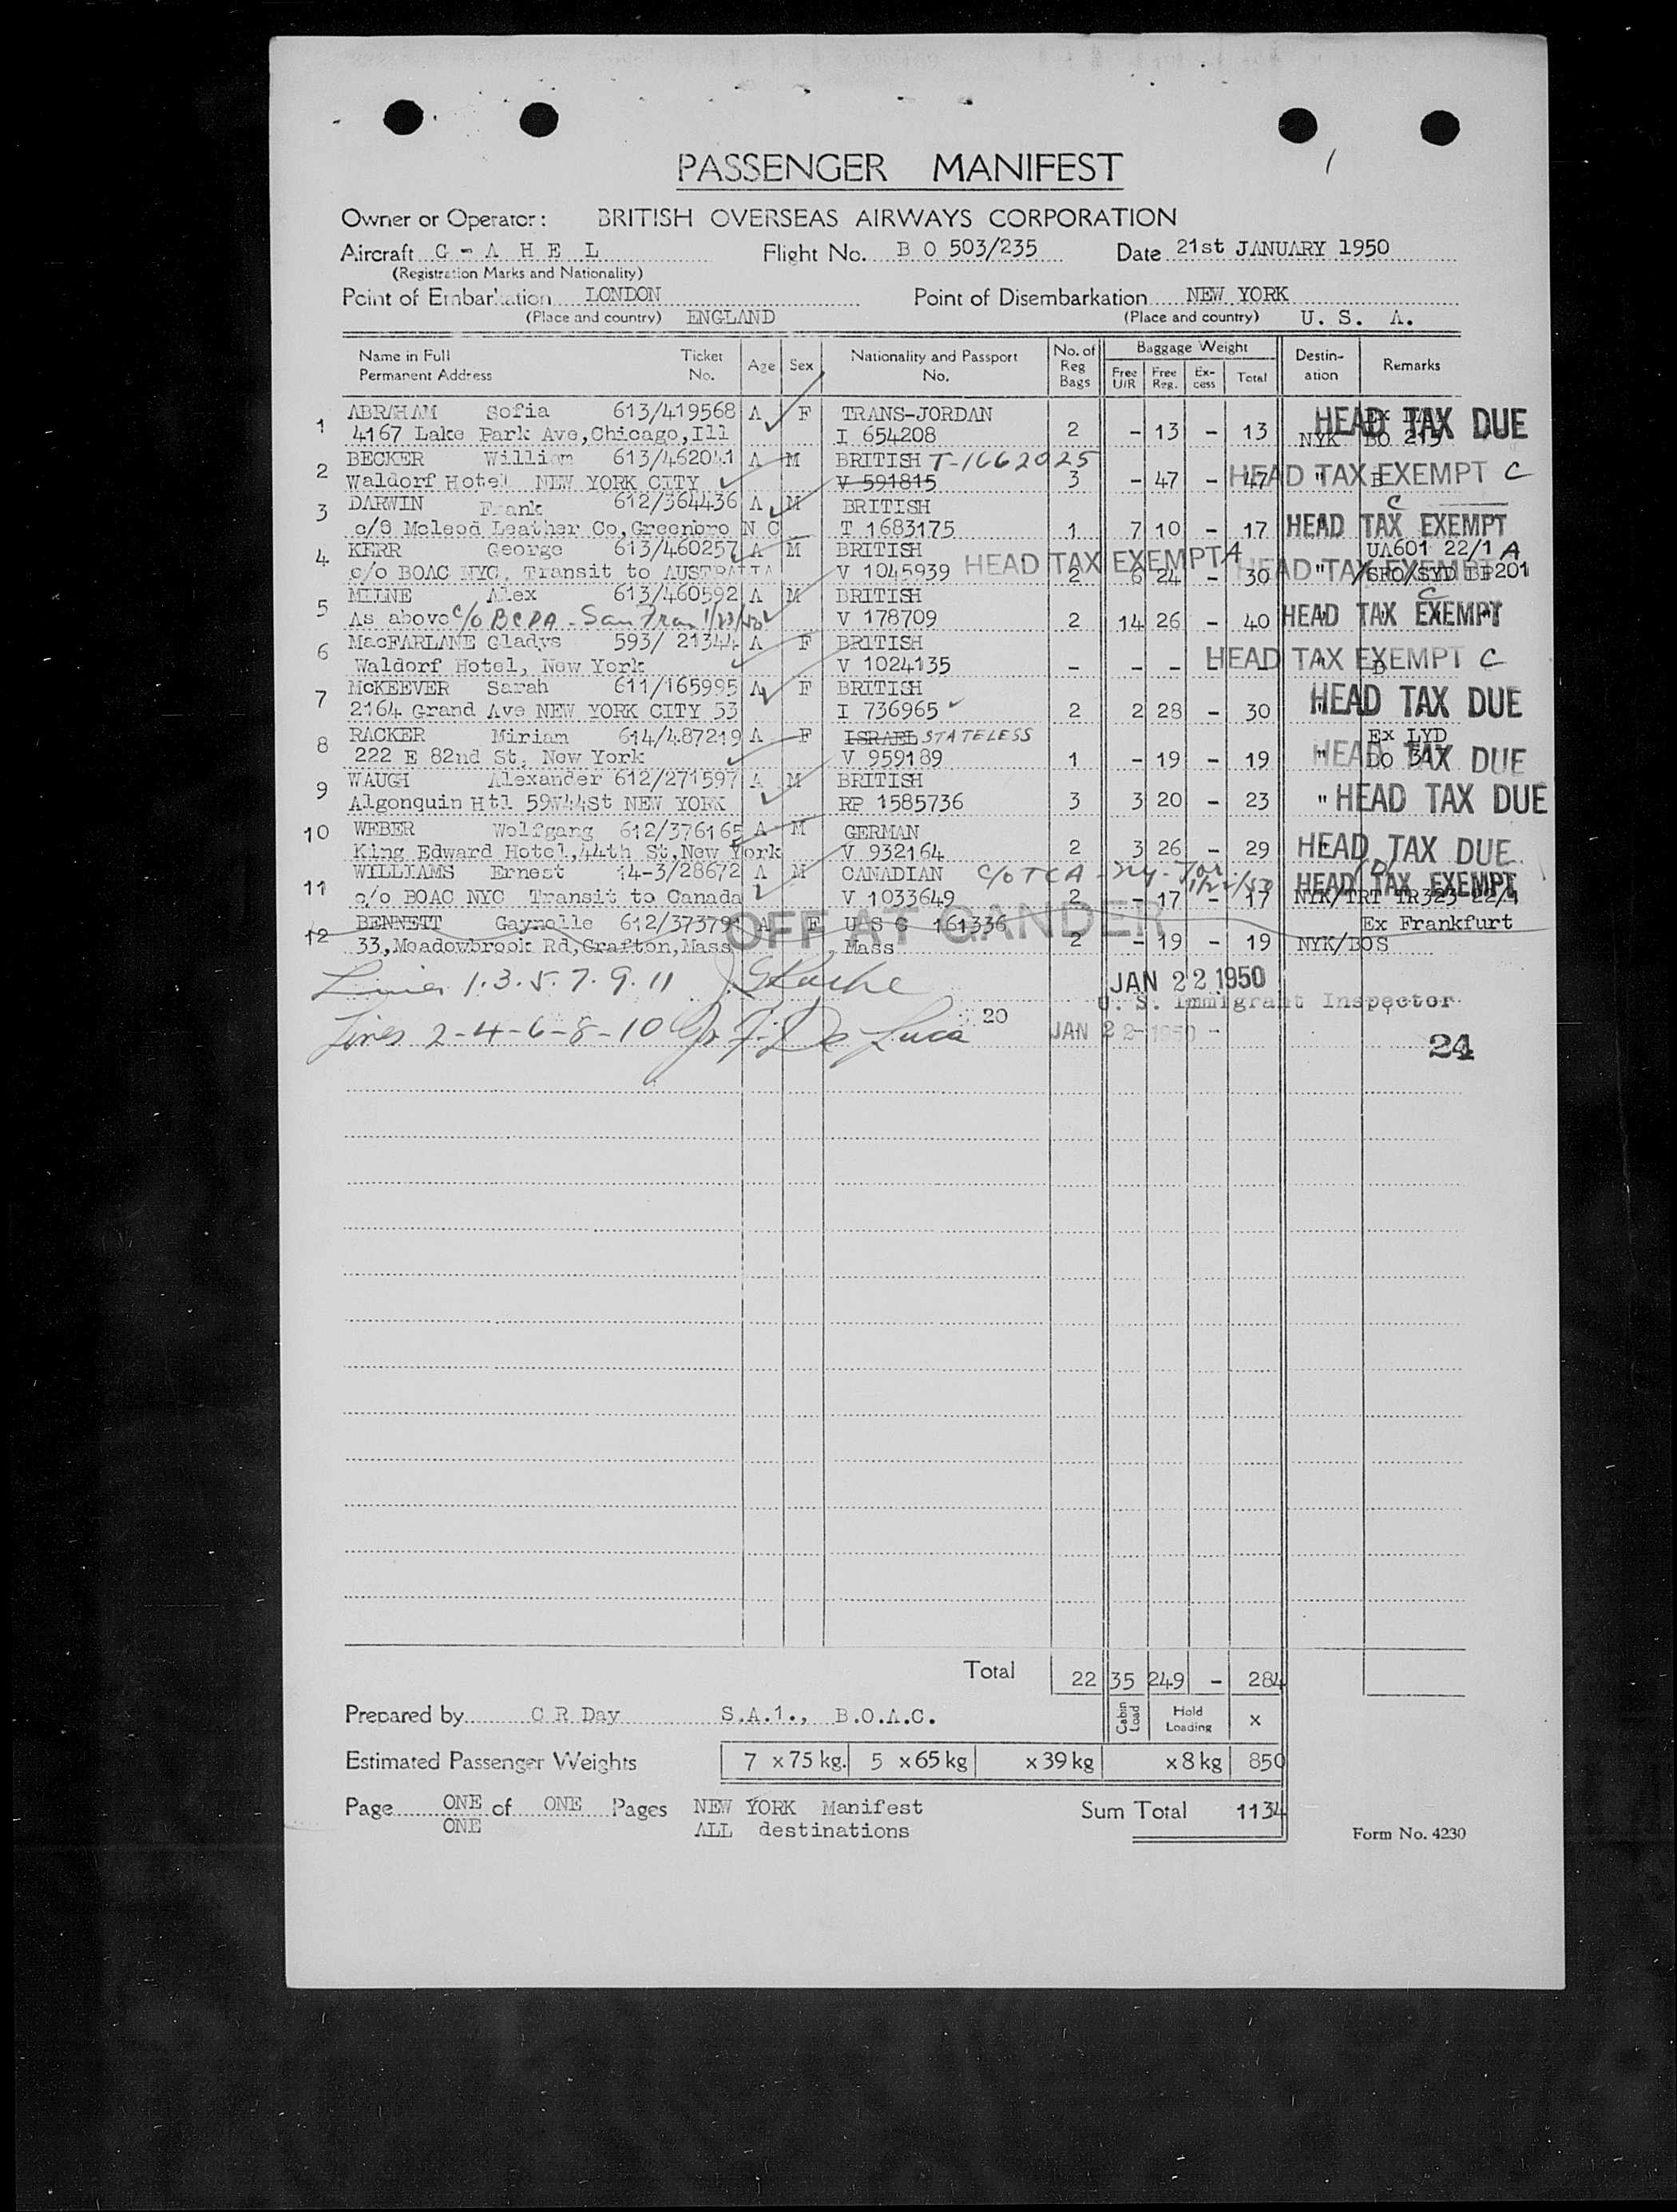 PASSENGER MANIFEST
Owner or Operator: BRITISH OVERSEAS AIRWAYS CORPORATION
Aircraft G - A H E L Flight No. B O 503/235 Date 21st JANUARY 1950
(Registration Marks and Nationality)
Point of Embarkation LONDON Point of Disembarkation NEW YORK
(Place and country) ENGLAND (Place and country) U. S. A.
Name in Full Ticket Age Sex Nationality and Passport No. of Reg Bags Baggage Weight Destin-ation Remarks
Permanent Address No. No. Free U/R Free Reg. Ex-cess Total
1 ABRAHAM Sofia 613/419568 A F TRANS-JORDAN Ex HEAD TAX DUE
4167 Lake Park Ave,Chicago,Ill I 654208 2 - 13 - 13 NYK BO 215
2 BECKER William 613/462041 A M BRITISH T-1662025
Waldorf Hotel NEW YORK CITY V 591815 3 - 47 - 47 " B HEAD TAX EXEMPT C
3 DARWIN Frank 612/364436 A M BRITISH C
c/o Mcleod Leather Co,Greenbro N C T 1683175 1 7 10 - 17 " HEAD TAX EXEMPT
4 KERR George 613/460257 A M BRITISH HEAD TAX EXEMPT A UA601 22/1 A
c/o BOAC NYC, Transit to AUSTRALIA V 1045939 2 6 24 - 30 " /SFO/SYD BP201 HEAD TAX EXEMPT
5 MILNE Alex 613/460592 A M BRITISH C
As above c/o BCPA - San Fran 1/23/50 V 178709 2 14 26 - 40 " " HEAD TAX EXEMPT
6 MacFARLANE Gladys 593/ 21344 A F BRITISH
Waldorf Hotel, New York V 1024135 - - - HEAD TAX EXEMPT C " B
7 McKEEVER Sarah 611/165995 A F BRITISH
2164 Grand Ave NEW YORK CITY 53 I 736965 2 2 28 - 30 " HEAD TAX DUE
8 RACKER Miriam 614/487219 A F ISRAEL STATELESS Ex LYD
222 E 82nd St, New York V 959189 1 - 19 - 19 " BO HEAD TAX DUE
9 WAUGH Alexander 612/271597 A M BRITISH
Algonquin Htl 59W44St NEW YORK RP 1585736 3 3 20 - 23 " HEAD TAX DUE
10 WEBER Wolfgang 612/376165 A M GERMAN
King Edward Hotel,44th St,New York V 932164 2 3 26 - 29 " HEAD TAX DUE
11 WILLIAMS Ernest 14-3/28672 A M CANADIAN c/o TCA - NY - Tor. 1/22/50
c/o BOAC NYC Transit to Canada V 1033649 2 - 17 - 17 NYK/TRT TR323 22/1 HEAD TAX EXEMPT
12 BENNETT Gaynelle 612/373791 A F U S C 161336 Ex Frankfurt
33,Meadowbrook Rd,Grafton,Mass Mass 2 - 19 - 19 NYK/BOS
OFF AT GANDER
Lines 1.3.5.7.9.11 JAN 22 1950
U. S. Immigrant Inspector
Lines 2-4-6-8-10 De Luca 20 JAN 22 1950
24
Total 22 35 249 - 284
Prepared by C R Day S.A.1., B.O.A.C. Cabin Load Hold Loading x
Estimated Passenger Weights 7 x 75 kg. 5 x 65 kg x 39 kg x 8 kg 850
Page ONE of ONE Pages NEW YORK Manifest Sum Total 1134
ONE ALL destinations Form No. 4230